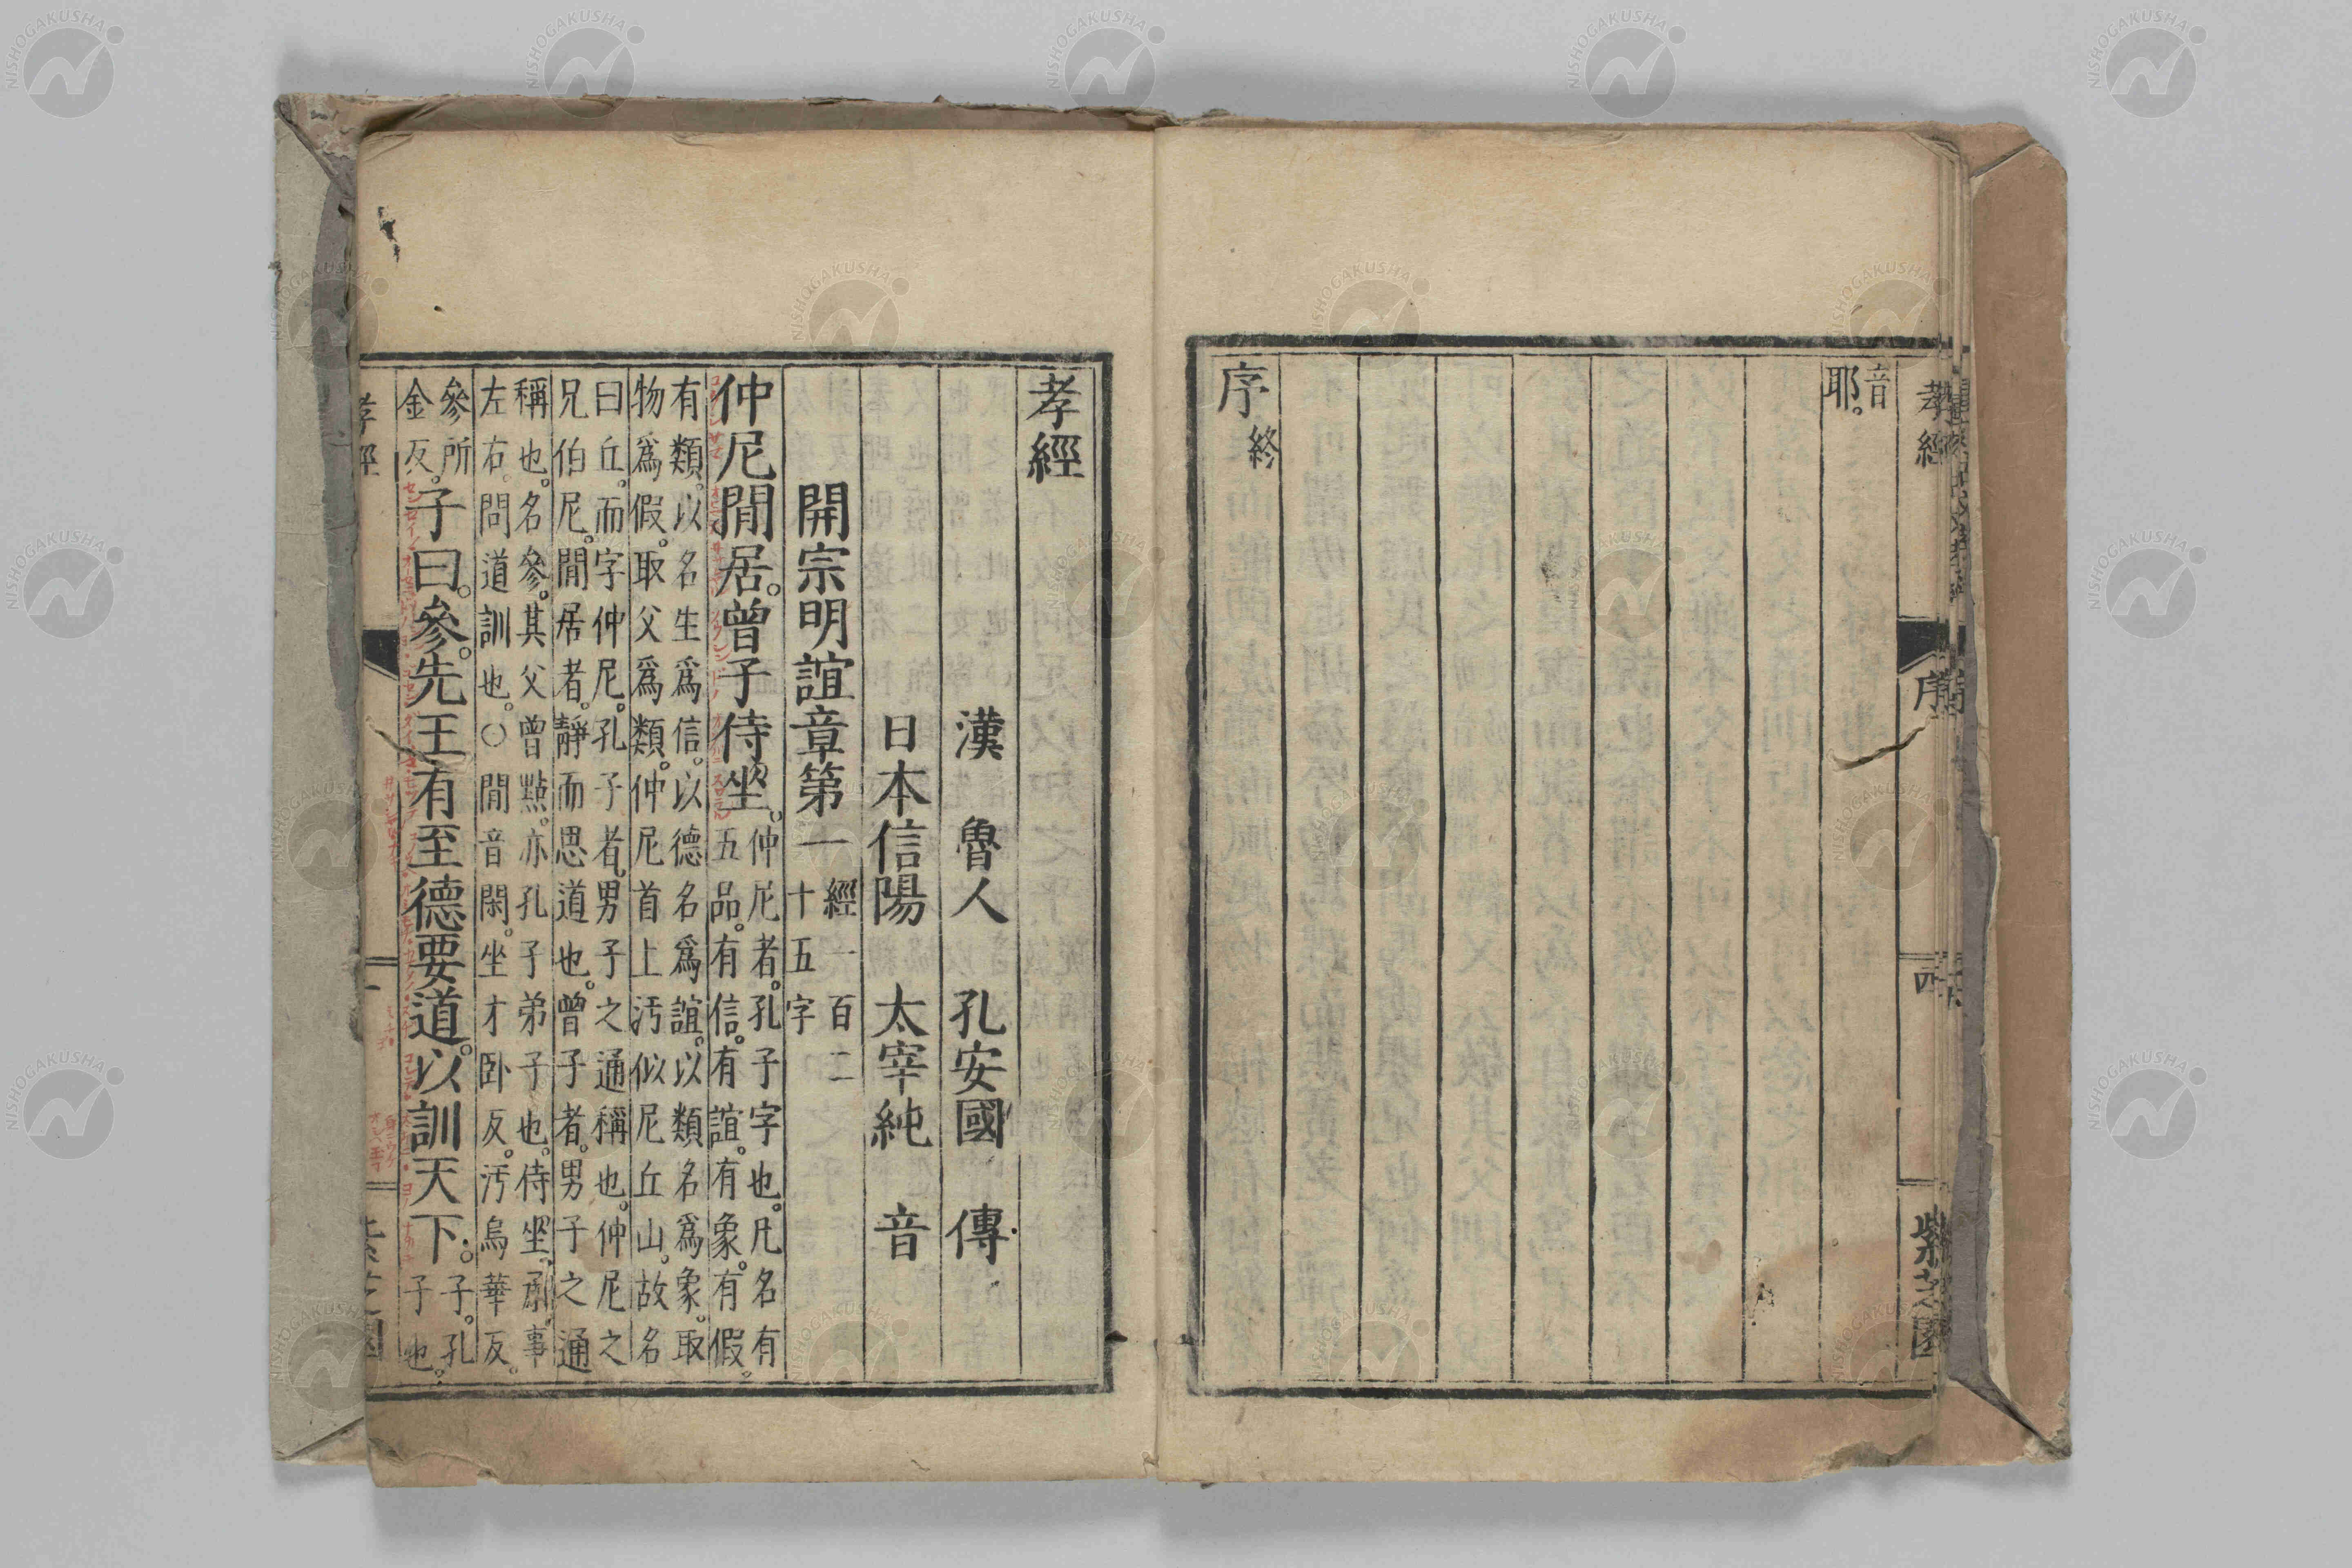 孝經 序 四 紫芝園
音
耶。
序終
孝經
漢 魯人 孔安國 傳
日本信陽 太宰純 音
開宗明誼章第一 經一百二十五字
仲尼閒居。曾子侍坐。
仲尼者。孔子字也。凡名有
五品。有信。有誼。有象。有假。
有類。以名生爲信。以德名爲誼。以類名爲象。取
物爲假。取父爲類。仲尼首上汚似尼丘山。故名
曰丘。而字仲尼。孔子者。男子之通稱也。仲尼之
兄伯尼。閒居者。靜而思道也。曾子者。男子之通
稱也。名參。其父曾點。亦孔子弟子也。侍坐。承事
左右。問道訓也。○閒音閑。坐才卧反。汚烏華反。
參所
金反。
子曰。參。先王有至德要道。以訓天下。
子。孔
子也。
孝經 一 紫芝園